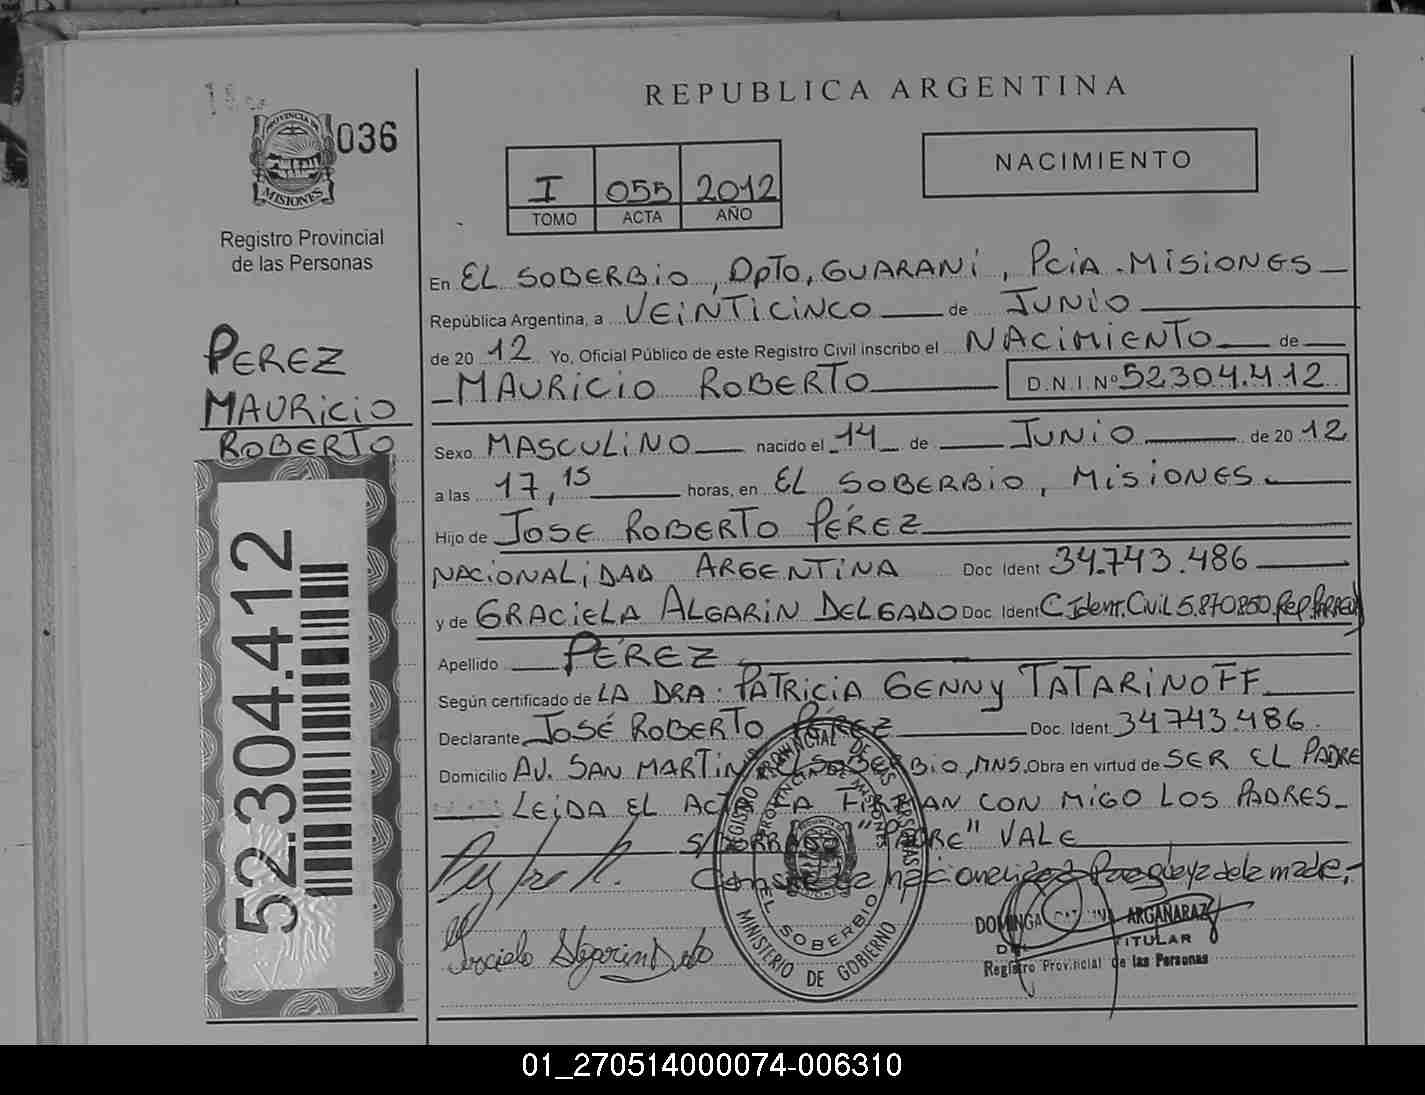 REPUBLICA ARGENTINA
PROVINCIA DE
MISIONES
036
Registro Provincial
de las Personas
I 055 2012
TOMO ACTA AÑO
NACIMIENTO
PEREZ
MAURICIO
ROBERTO
52.304.412
En EL SOBERBIO, DPTO, GUARANI, PCIA. MISIONES
República Argentina, a VEINTICINCO de JUNIO
de 20 12 Yo, Oficial Público de este Registro Civil inscribo el NACIMIENTO de
MAURICIO ROBERTO D.N.I. Nº 52304.412
Sexo MASCULINO nacido el 14 de JUNIO de 20 12
a las 17,15 horas, en EL SOBERBIO, MISIONES.
Hijo de JOSE ROBERTO PÉREZ
NACIONALIDAD ARGENTINA Doc Ident 34.743.486
y de GRACIELA ALGARIN DELGADO Doc Ident C.Ident.Civil 5.870.850.Rep.
Apellido PÉREZ
Según certificado de LA DRA. PATRICIA GENNY TATARINOFF
Declarante JOSÉ ROBERTO PÉREZ Doc. Ident. 34743.486.
Domicilio AV. SAN MARTIN EL SOBERBIO, MNS. Obra en virtud de SER EL PADRE
LEIDA EL ACTA LA FIRMAN CON MIGO LOS PADRES
S/BORRADO "PADRE" VALE
Conste la nacionalidad Paraguaya de la madre.-
Graciela Algarin
REGISTRO PROVINCIAL DE LAS PERSONAS
PROVINCIA DE MISIONES
EL SOBERBIO
MINISTERIO DE GOBIERNO
DOMINGA ARGAÑARAZ
TITULAR
Registro Provincial de las Personas
01_270514000074-006310